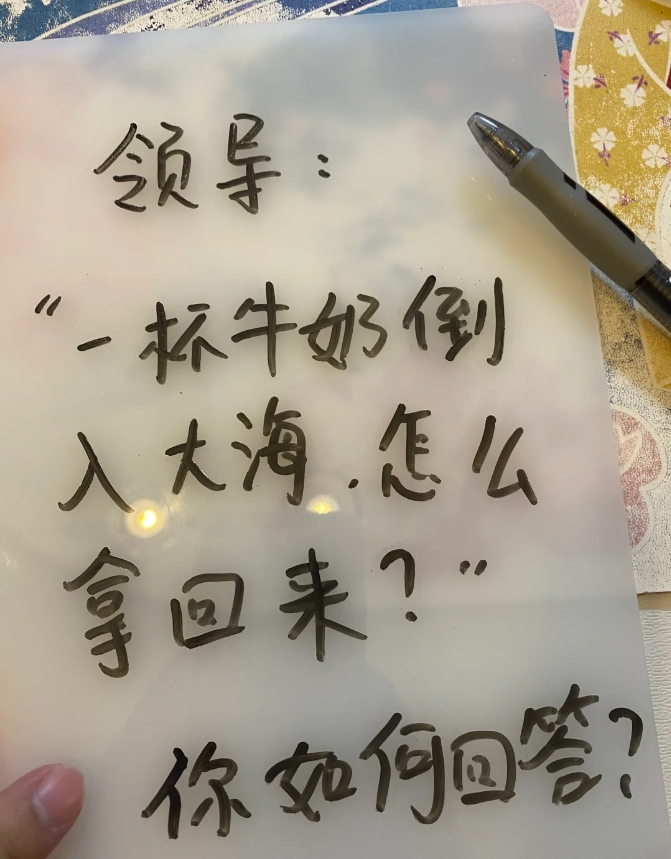 领导:
“一杯牛奶倒
入大海.怎么
拿回来?”
你如何回答?